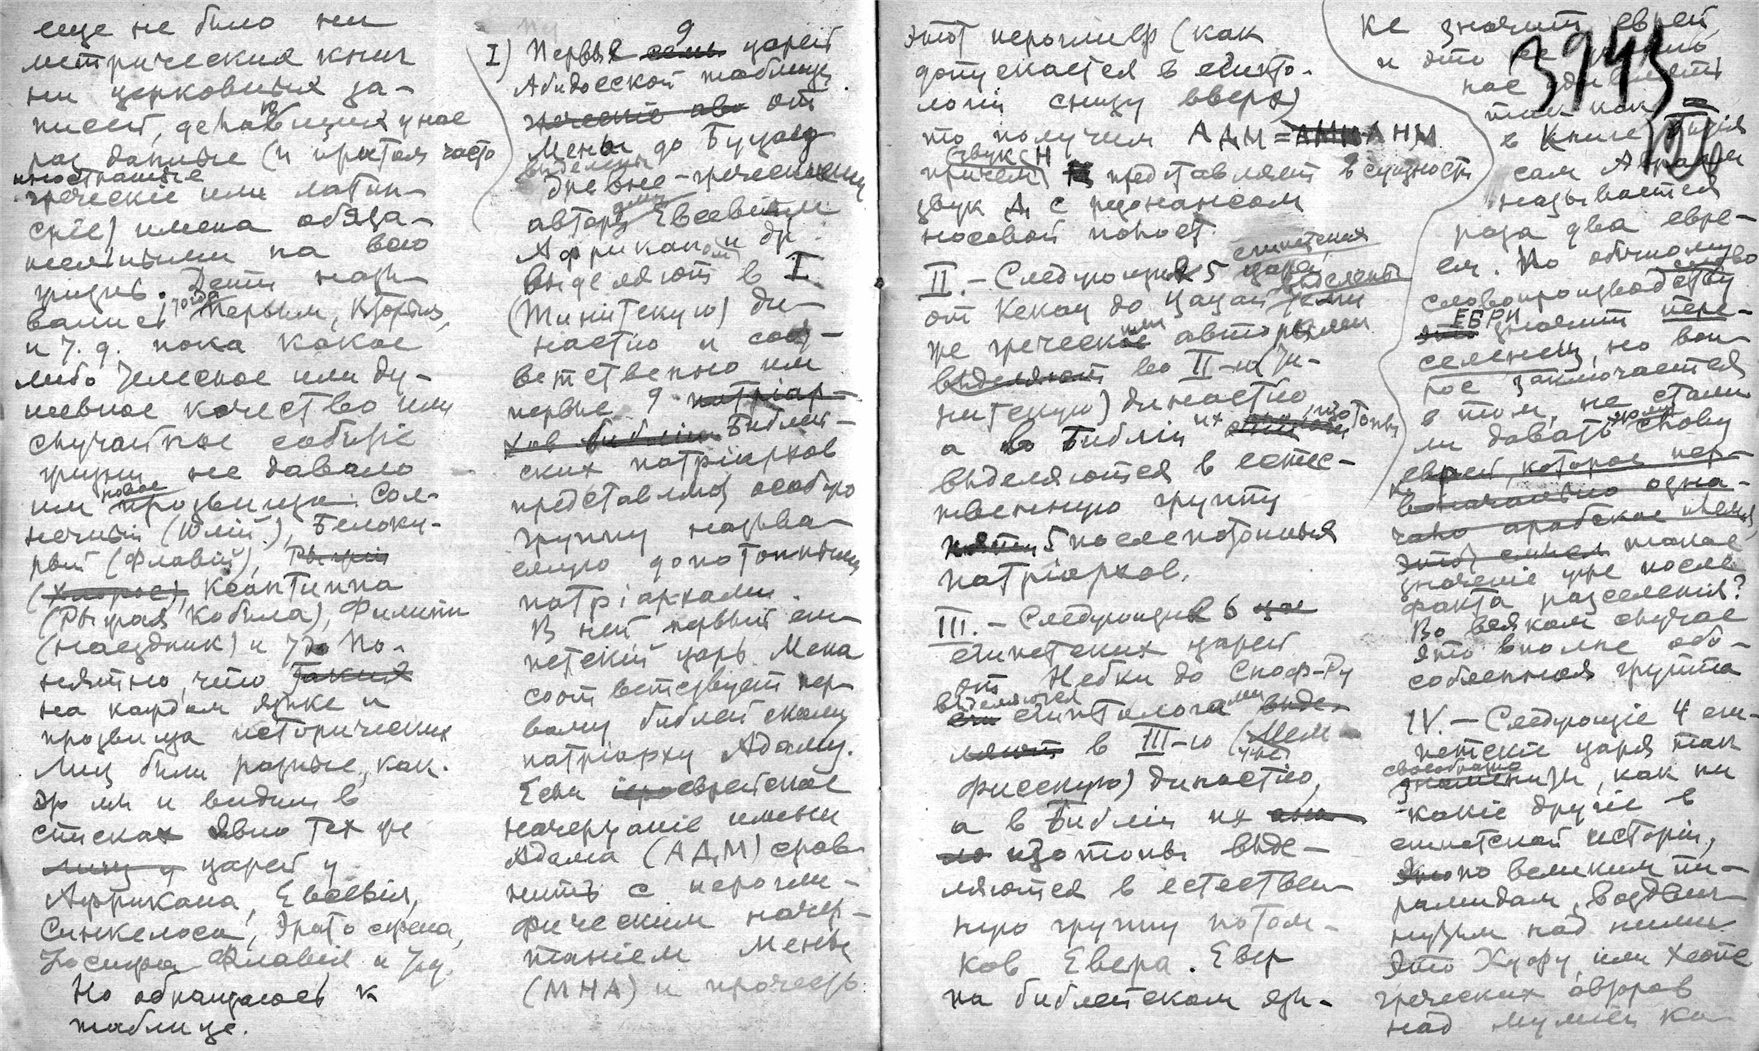 еще не было ни
метрических книг
ни церковных за-
писей, делавших у нас
раз данные (и притом часто
иностранные
греческие или латин-
ские) имена обяза-
тельными на всю
жизнь. Дети назы-
вались тогда Первым, Вторым,
и т. д. пока какое
либо телесное или ду-
шевное качество или
случайное событіе
жизни не давало
им новое прозвище. Сол-
нечный (Юлій), Белоку-
рый (Флавій), Рыжій
(Хлорос), Ксантиппа
(Рыжая Кобыла), Филипп
(наездник) и т. д. По-
нятно, что такия
на каждом языке и
прозвища исторических
лиц были разные, как
это мы и видим в
списках явно тех же
лиц у царей у
Африкана, Евсевія,
Синкелоса, Эратосфена,
Іосифа Флавія и т. д.
Но обращаюсь к
таблице.
I) Первыя семь 9 царей
Абидосской таблицы
от
Мены до Бузау
выделены
древне-греческими
авторами Евсевіем
Африканом и др.
выделяют в I
(Тинитскую) ди-
настію и соот-
ветственно им
первые 9 патріар-
хов библіи Библей-
ских патріархов
представляют особую
группу называ-
емую допотопными
патріархами.
В ней первый еги-
петскій царь Мена
соответствует пер-
вому библейскому
патріарху Адаму.
Если еврейское
начертаніе имени
Адама (АДМ) срав-
нить с іерогли-
фическим начер-
таніем Мены
(МНА) и прочесть
этот іероглиф (как
допускается в египто-
логіи снизу вверх)
то получим АДМ=АНМ
причем звук Н представляет в сущности
звук Д с резонансом
носовой полост
II.- Следующия 5 египетския
царей, выделены
от Кекау до Цацаи теми
же греческие или авторами
выделяют во II-ю (Ти-
нитскую) династію
а в Библіи их изотопы
выделяются в естес-
твенную группу
5 послепотопных
патріархов.
III.- Следующие 6
египетских царей
от Небки до Сноф-Ру
выделяются
египтологами выде-
ляют в III-ю (Мем-
фисскую) династію,
а в Библіи их
изотопы выде-
ляются в естествен-
ную группу потом-
ков Евера. Евер
на библейском язы-
ке значит еврей
и это не должно
нас удивлять
3943
так как
в Книге Бытія
сам Авраам
называется
раза два евре-
ем. По обычному
словопроизводству слово
ЕБРИ значит пере-
селенец, но воп-
рос заключается
в том, не стали
ли давать слову
еврей, которое пер-
воначально озна-
чало арабское племя,
этот смысл такое
значеніе уже после
факта разселенія?
Во всяком случае
это вполне обо-
собленная группа
IV.- Следующіе 4 еги-
петскіе царя так
своеобразны
знамениты, как ни
какіе другіе в
египетской исторіи,
по великим пи-
рамидам, воздвиг-
нутым над ними.
Это Хуфу, или Хеопс
греческих авторов
над муміей ко-